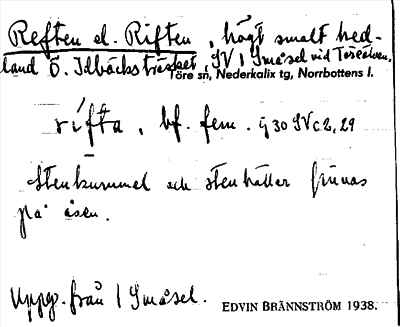 Reften el. Riften, högt smalt hed-
land Ö. Idbäcksträsket, SV I Småsel vid Töreälven,
Töre sn, Nederkalix tg, Norrbottens l.
rífta, bf. fem. § 30 IV c 2, 29
Stenkummel och stenhällar finnas
på åsen.
Uppg. från I Småsel.
EDVIN BRÄNNSTRÖM 1938.